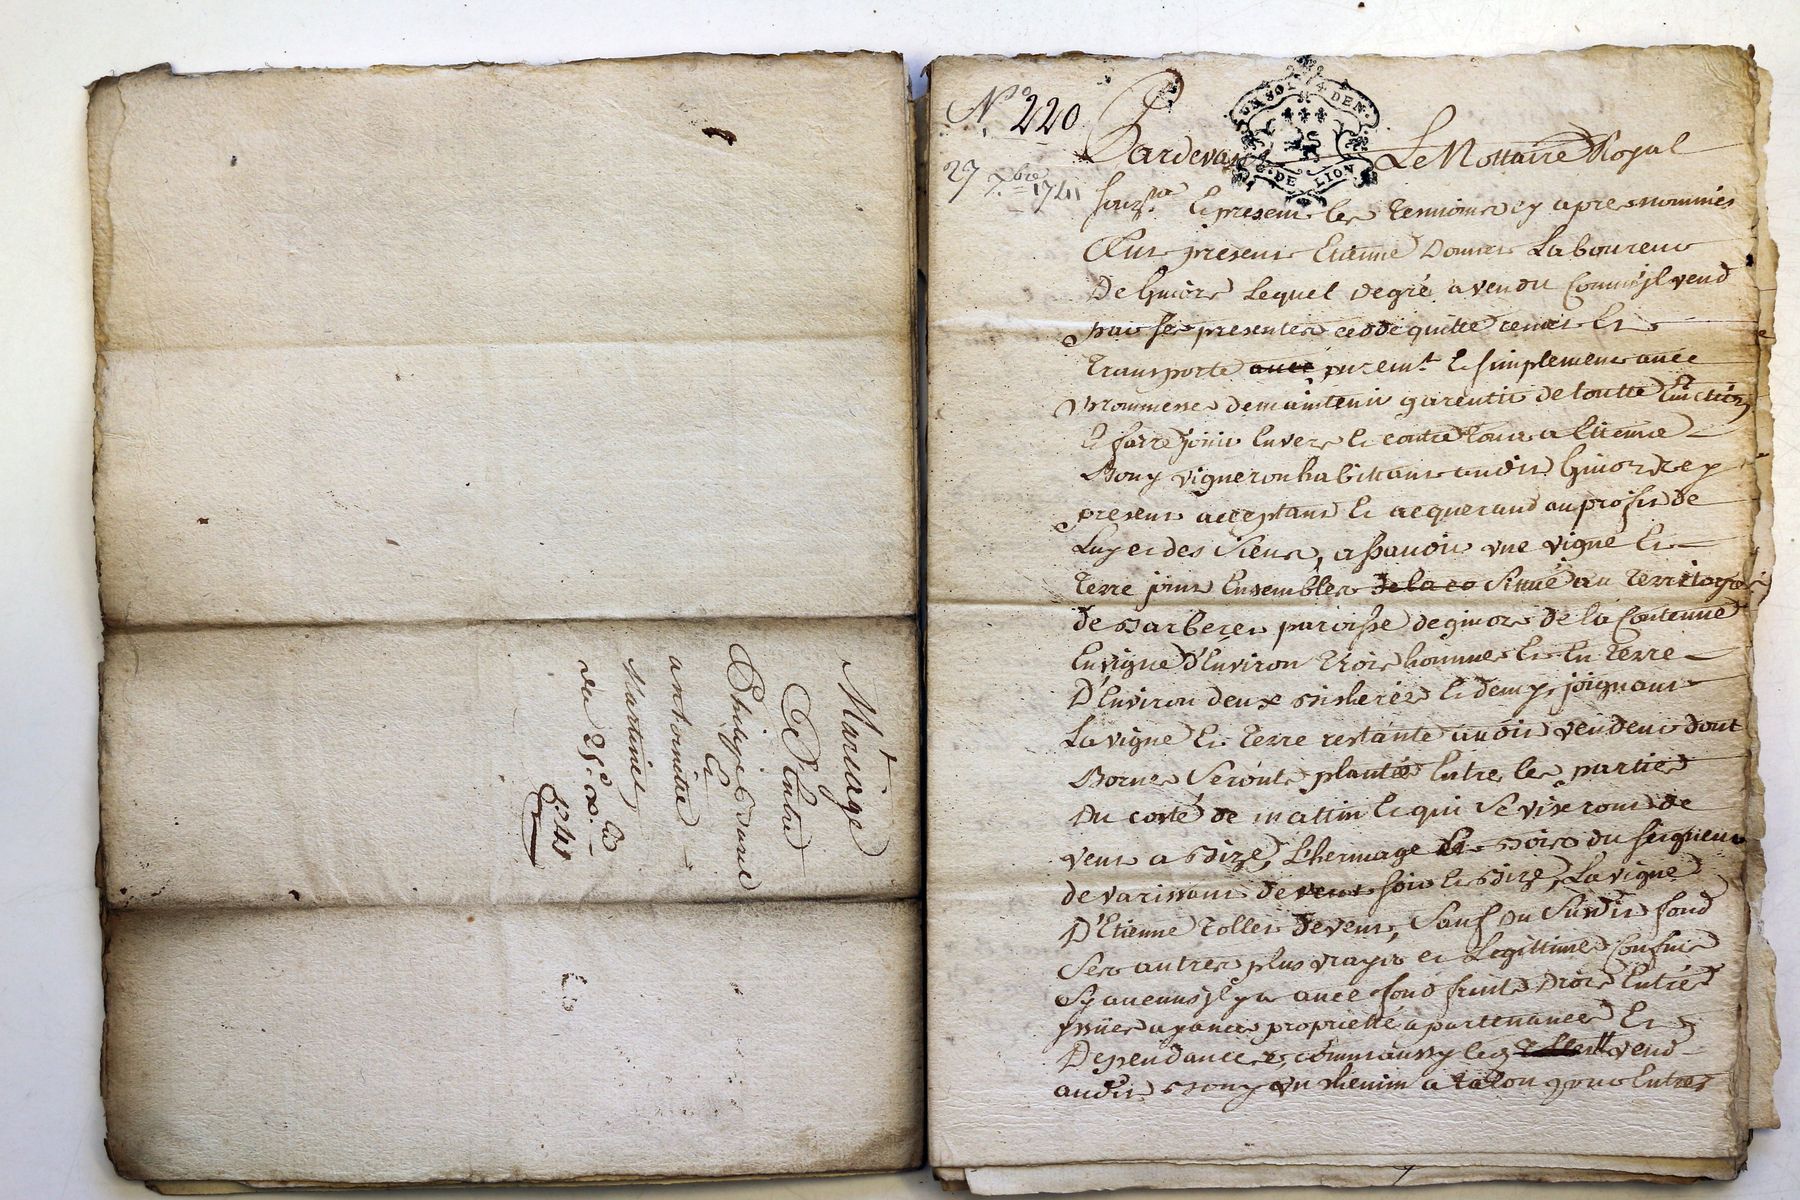 Mariage
D'André
Philize Dured
Et
anthoinette
Martinet
du 25.e
1741
N.o 220
27 7.bre 1741
UN SOL 4 DEN
DE LION
Pardevant Le Nottaire Royal
souz.né Et present les temoins cy apres nommés
Est present Etienne Laboureur
De Lequel de gré a vendu Comme jl vend
par ses presentes cedde quitte remet Et
transporte purem.t Et simplement avec
Prommesse de maintenir garentir de toutte Eviction
Et faire jouir Envers Et contre tous a Etienne
Bony vigneron habittant audit cy
present acceptant Et acquerand au profit de
Luy et des siens, a sçavoir vne vigne Et
terre joint Ensembles de la co situé au territoire
de parroisse de de la Contenue
En vigne d'Environ trois hommes Et En terre
D'Environ deux Bicherés Et demy joignant
La vigne Et terre restante audit vendeur dont
Bornes seront plantée Entre les partie
Du costé de mattin Et qui se viseront de
vent a Bize, L'hermage Et Bois du seigneur
de de vent soir Et Bize, La vigne
D'Etienne de vent, sauf du susdit fond
ses autres plus vrayes et Legittimes Confins
sy aucuns jl y a avec fond fruits Droits Entrée
yssües ayances proprietté apartenances Et
Dependances, comm'aussy vend
audit Bony vn chemin a talon pour Entrer